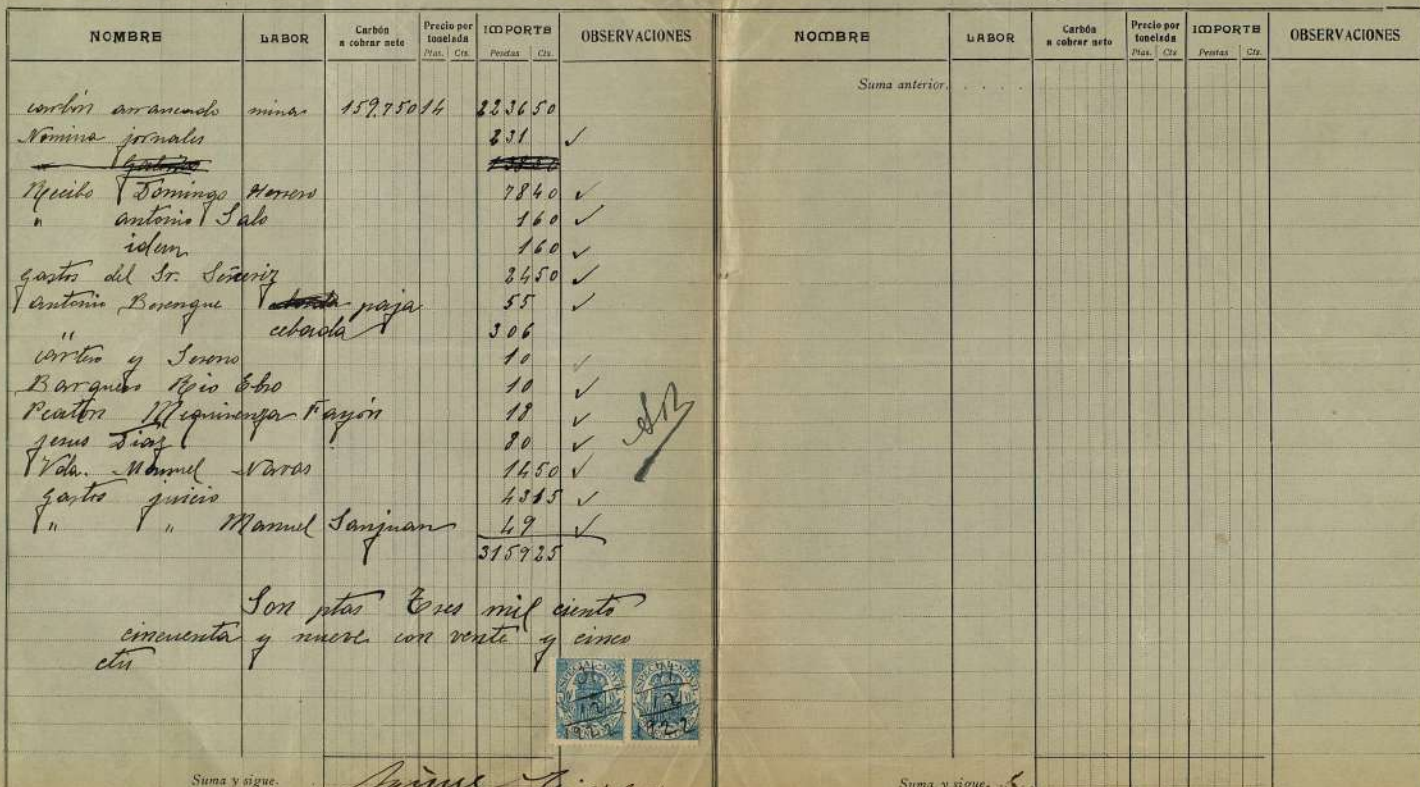 NOMBRE LABOR Carbón a cobrar neto Precio por tonelada Ptas. Cts. IMPORTE Pesetas Cts. OBSERVACIONES
carbón arrancado minas 159.750 14 2236 50
Nomina jornales 231 ✓
Recibo Domingo Herrero 78 40 ✓
" antonio Salo 1 60 ✓
idem 1 60 ✓
gastos del Sr. 24 50 ✓
antonio Berengue paja 55 ✓
" cebada 306
cartero y Sereno 10 ✓
Barquero Rio Ebro 10 ✓
Peaton Mequinenza Fayón 18 ✓
jesus Diaz 80 ✓
Vda. Manuel Navas 14 50 ✓
gastos juicio 43 15 ✓
" " Manuel Sanjuan 49 ✓
3159 25
Son ptas Tres mil ciento
cincuenta y nueve con vente y cinco
cts
ESPECIAL MOVIL
31
12
922
ESPECIAL MOVIL
31
12
922
Suma y sigue.
NOMBRE LABOR Carbón a cobrar neto Precio por tonelada Ptas. Cts IMPORTE Pesetas Cts. OBSERVACIONES
Suma anterior.
Suma y sigue.